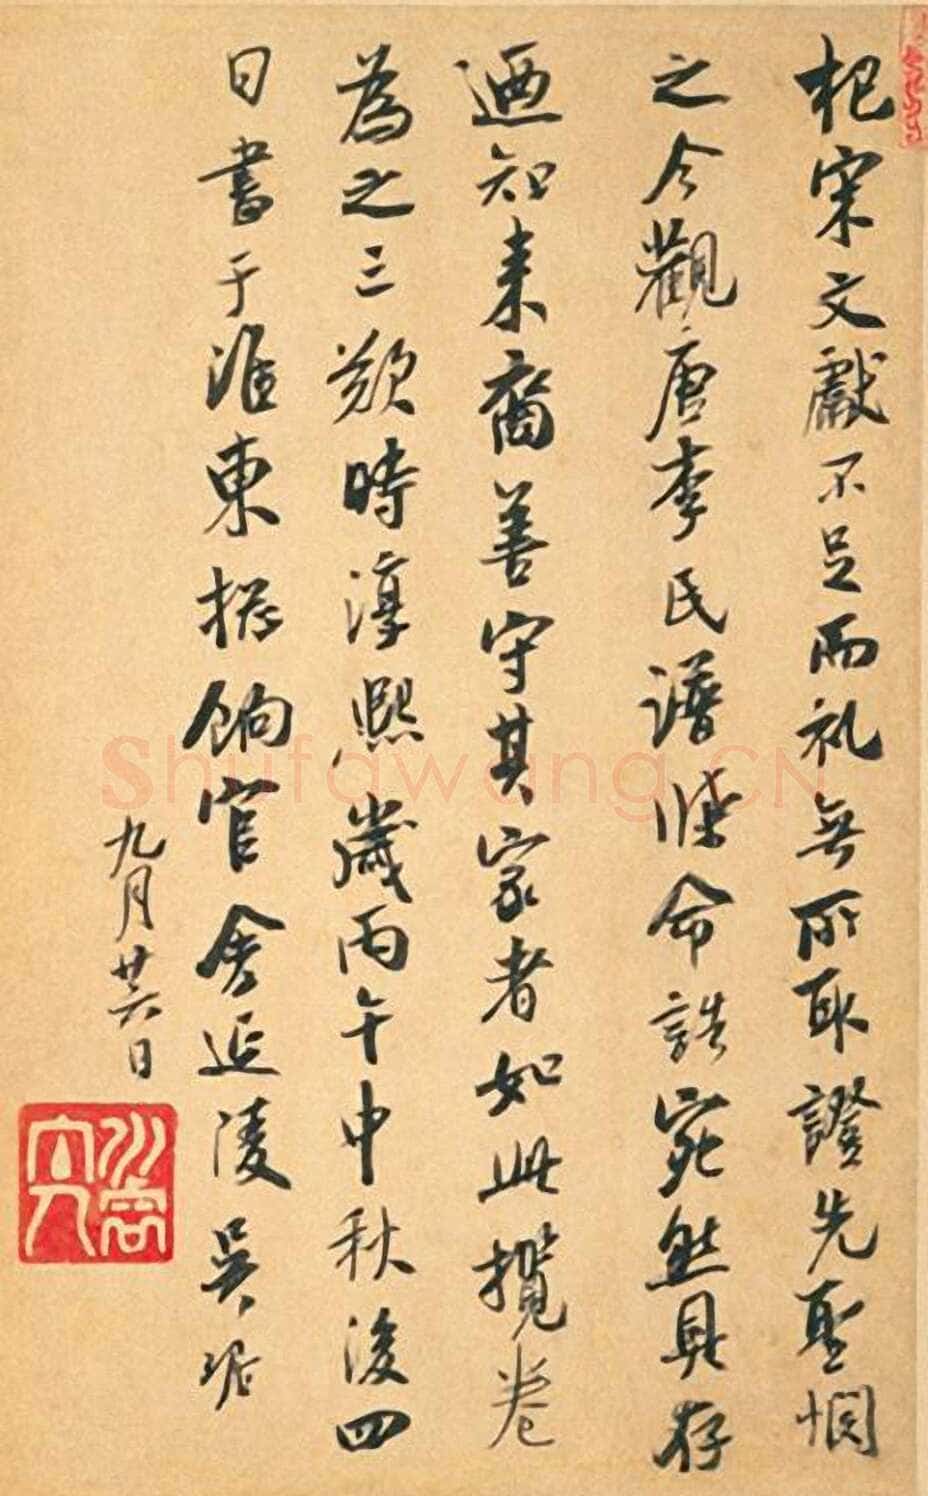 杞宋文獻不足而礼無所取證先聖惘
之今觀唐李氏譜牒命誥宛然具存
迺知來裔善守其家者如此攬卷
為之三歎時淳熙歲丙午中秋後四
日書于淮東揔餉官舍延陵吳琚
九月廿六日
Shufawang.CN